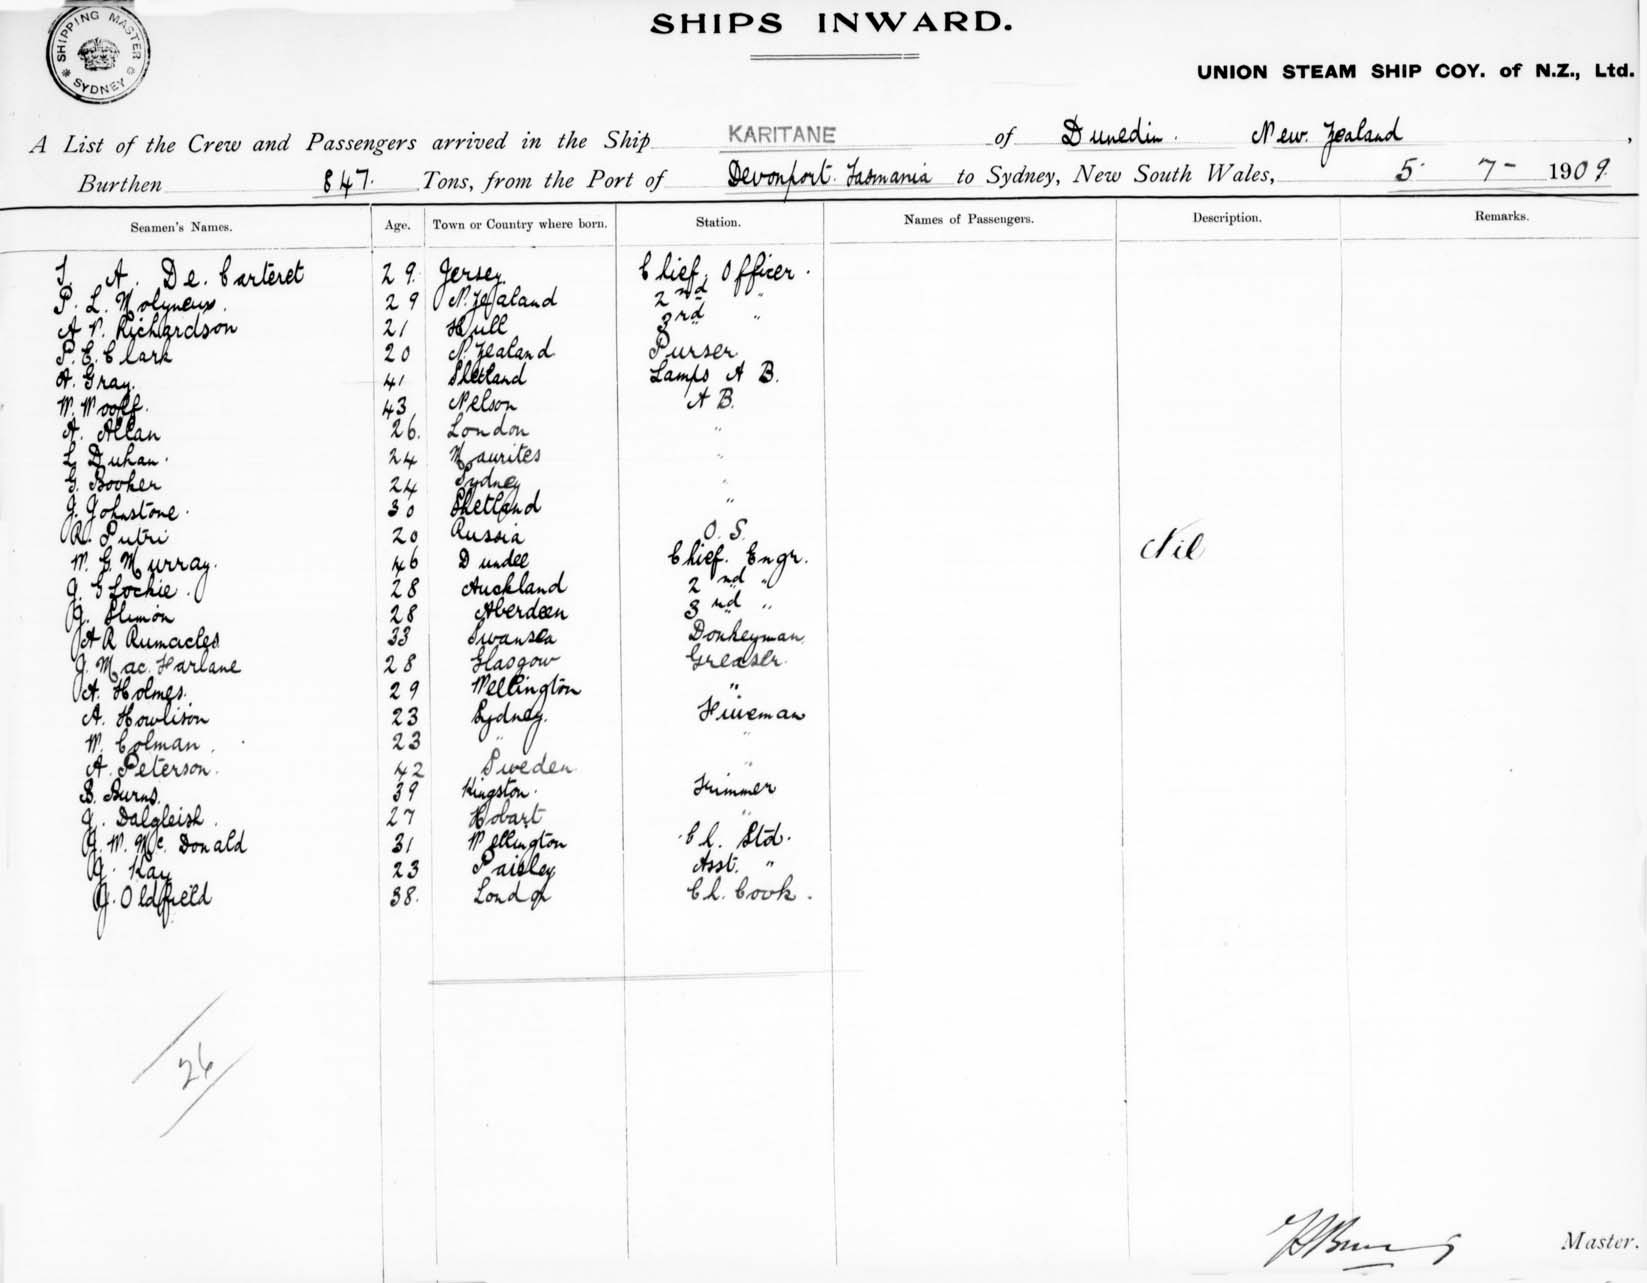 SHIPPING MASTER
SYDNEY
SHIPS INWARD.
UNION STEAM SHIP COY. of N.Z., Ltd.
A List of the Crew and Passengers arrived in the Ship KARITANE of Dunedin. New. Zealand,
Burthen 847. Tons, from the Port of Devonport. Tasmania to Sydney, New South Wales, 5. 7- 1909.
Seamen's Names. Age. Town or Country where born. Station. Names of Passengers. Description. Remarks.
A. De. Carteret 29. Jersey. Chief. Officer.
P. L. Molyneux. 29 N. Zealand 2nd "
A. P. Richardson 21 Hull 3rd "
P. E. Clark 20 N. Zealand Purser
A. Gray. 41 Shetland Lamps A B.
W. Woolf. 43 Nelson A B.
A. Allan 26. London "
L. Duhan. 24 Maurites "
G. Booker 24 Sydney "
J. Johnstone. 30 Shetland "
R. Putri 20 Russia O. S.
W. G. Murray. 46 Dundee Chief. Engr. Nil
J. G Lockie. 28 Auckland 2nd "
J. Slimon 28 Aberdeen 3rd "
A R Rumacles 33 Swansea Donkeyman
J. Mac. Farlane 28 Glasgow Greaser.
A. Holmes. 29 Wellington "
A. Howlison 23 Sydney. Fireman
W. Colman. 23 " "
A. Peterson. 42 Sweden "
B. Burns. 39 Kingston. Trimmer
J. Dalgleish. 27 Hobart "
J. W. Mc. Donald 31 Wellington Ch. Std.
J. Kay 23 Paisley Asst. "
J. Oldfield 38. London Ch. Cook.
26
Master.